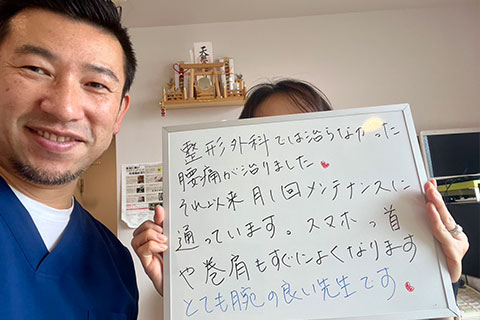 整形外科では治らなかった
腰痛が治りました
それ以来月1回メンテナンスに
通っています。スマホっ首
や巻肩もすぐによくなります
とても腕の良い先生です。